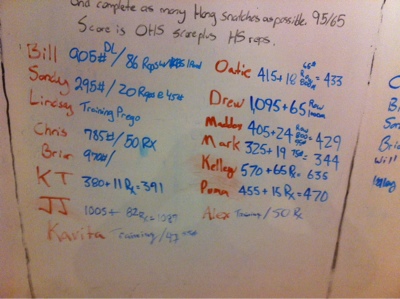 and complete as many Hang snatches as possible. 95/65
Score is OHS score plus HS reps.
Bill 905# DL / 86 Reps
Sandy 295# / 20 Reps @ 45#
Lindsey Training Prego
Chris 785# / 50 RX
Brian
KT 380+11 Rx = 391
JJ 1005+ 82 Rx = 1087
Kavita Training / 47
415+18 65# Row = 433
Drew 1095+65 Row
Maddox 405+24 Row = 429
Mark 325+19 75# = 344
Kelley 570+65 Rx = 635
Penn 455+15 Rx = 470
Alex Training / 50 Rx
C
B
Bri
Will